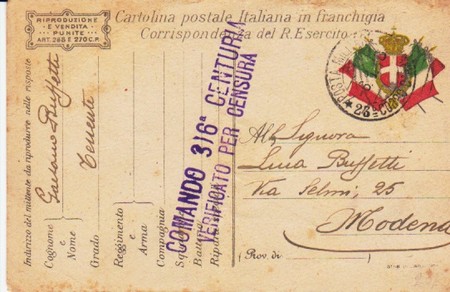 RIPRODUZIONE
E VENDITA
PUNITE
ART. 285 E 270 C.P.
Cartolina postale Italiana in franchigia
Corrispondenza del R. Esercito
POSTA MILITARE
28
COMANDO 316ª CENTURIA
VERIFICATO PER CENSURA
Indirizzo del mittente da riprodurre nelle risposte
Cognome e Nome
Gaetano Buffetti
Grado
Tenente
Reggimento e Arma
Compagnia
Squa
Batteria
Riparto
Alla Signora
Luisa Buffetti
Via Selmi, 25
Modena
(Prov. di